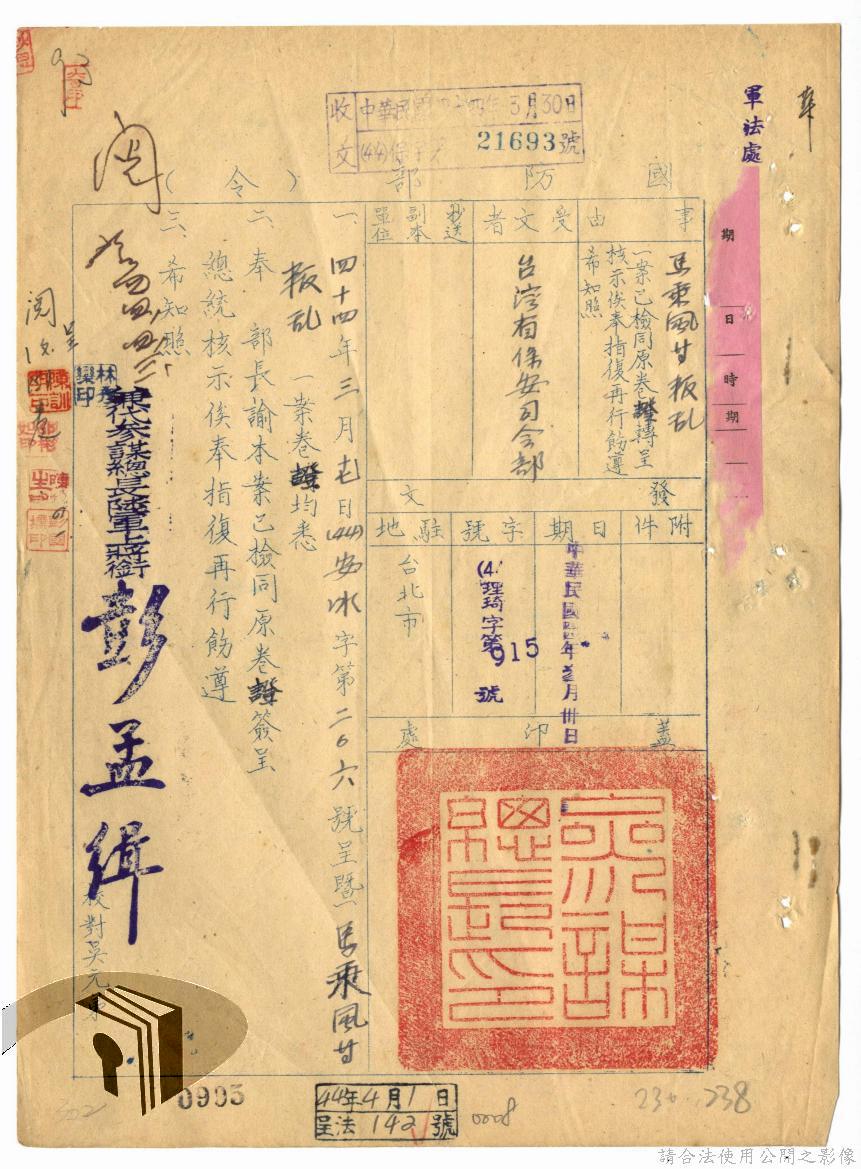 收文
中華民國四十四年3月30日
(44)保
21693號
軍法處
國防部(令)
事由
馬乘風廿叛乱
一案已檢同原卷證轉呈
核示俟奉指復再行飭遵
希知照
受文者
台湾省保安司令部
抄送副本單位
發文
附件
日期
中華民國四四年叁月卅日
字號
理琦字第915號
駐地
台北市
蓋印處
參謀總長印
一、四十四年三月七日(44)安水字第二〇六號呈暨馬乘風廿
叛乱一案卷證均悉
二、奉 部長諭本案已檢同原卷證簽呈
總統核示俟奉指復再行飭遵
三、希知照
兼代參謀總長陸軍上將銜
彭孟緝
校對吳元
閱
呈閱
期
日
時
期
0995
44年4月1日
呈法142號
0008
302
230-238
請合法使用公開之影像